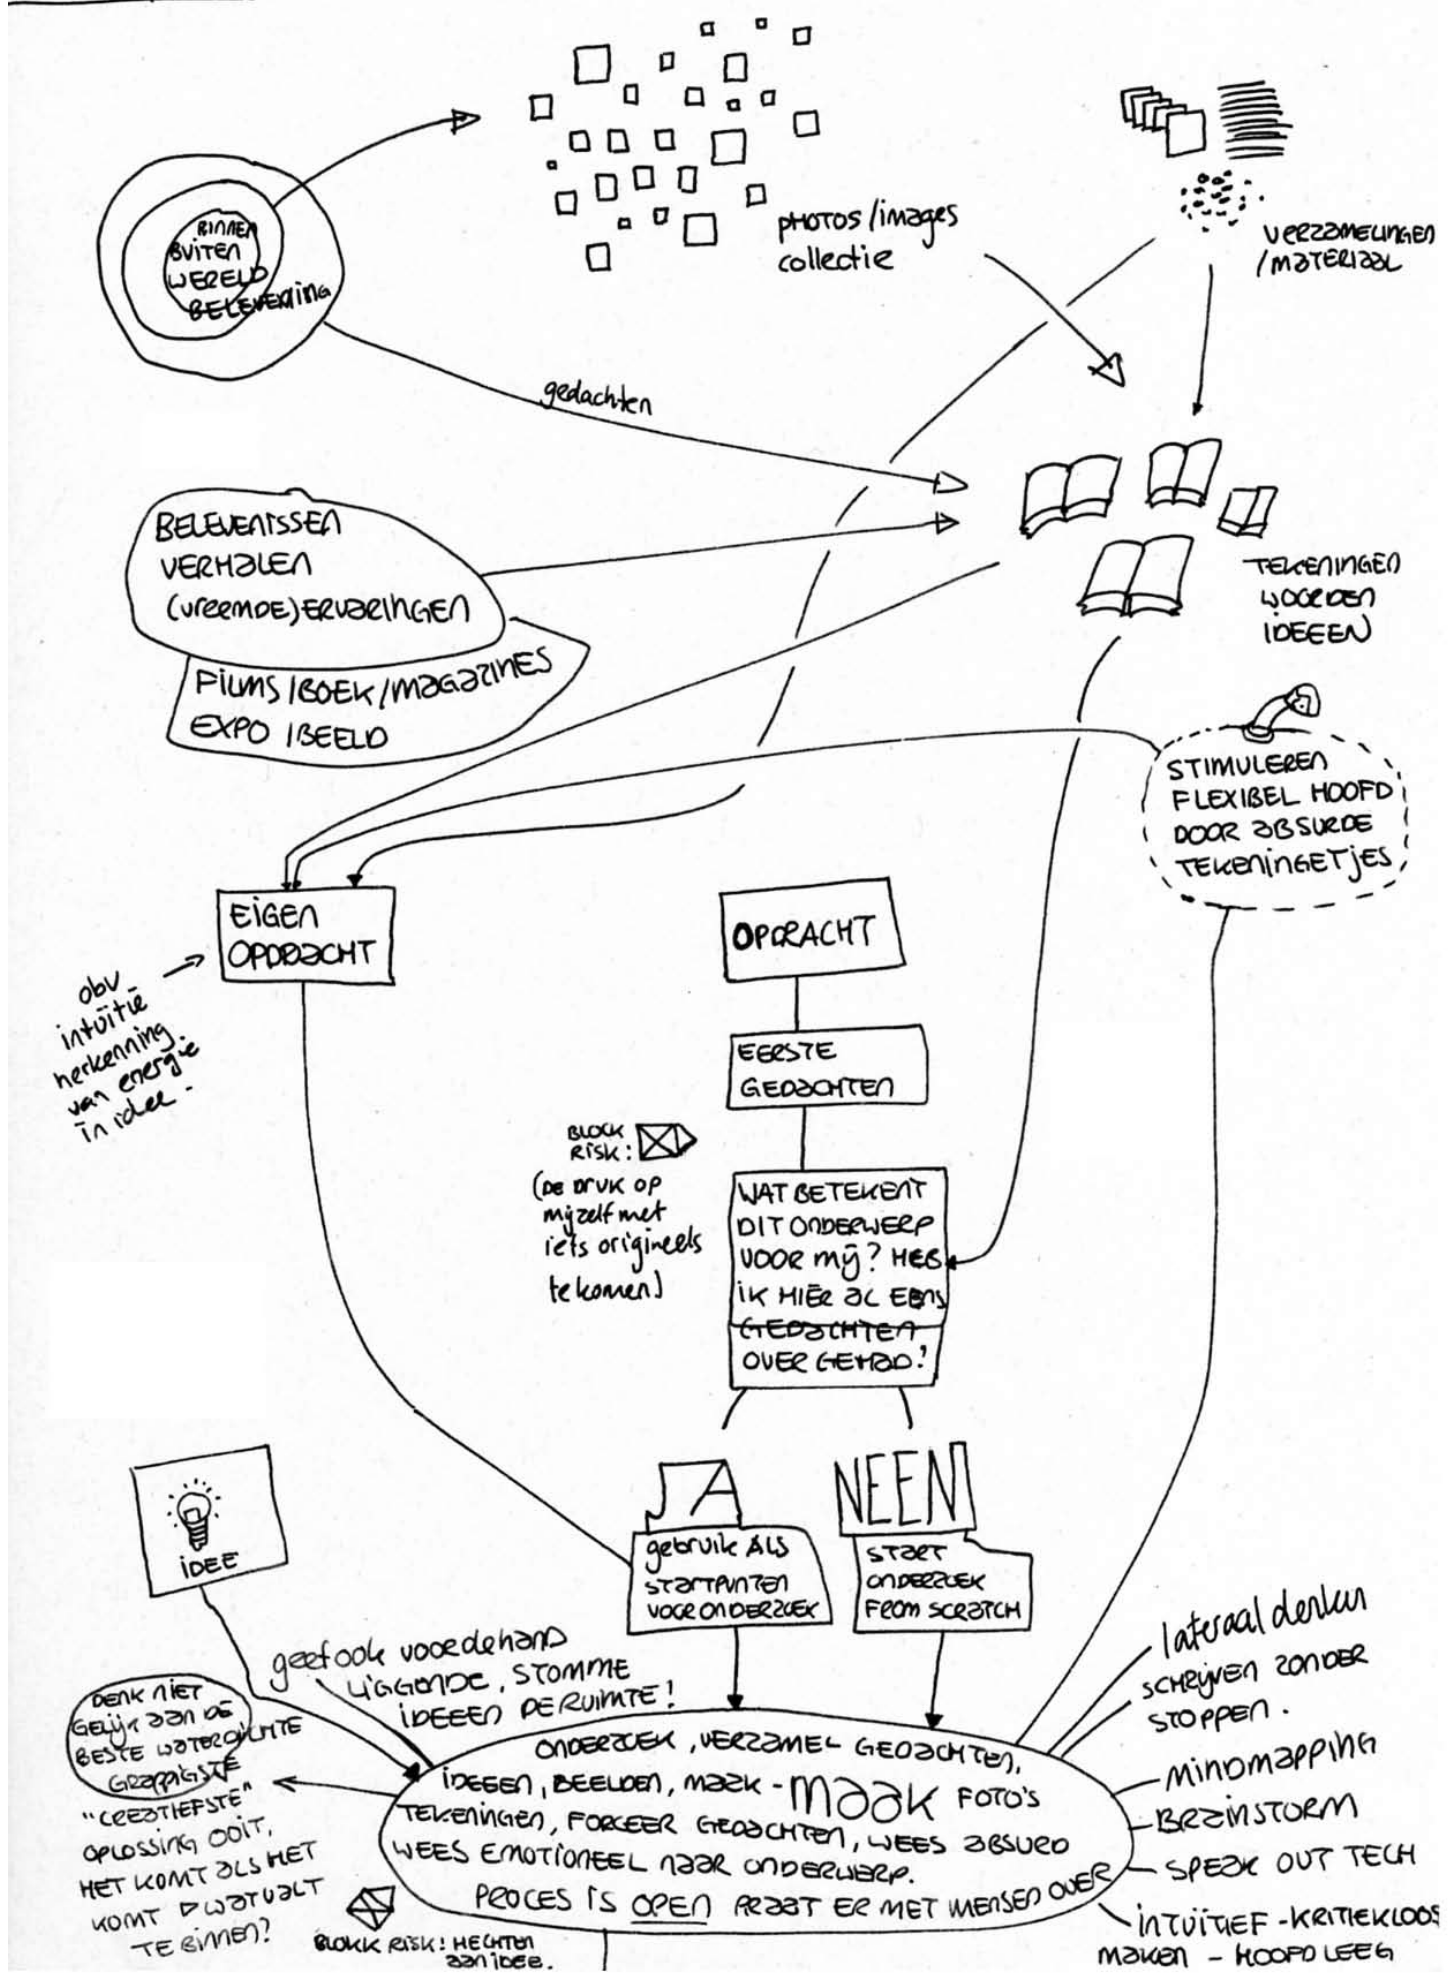 BINNEN
BUITEN
WERELD
BELEVENING
PHOTOS/images
collectie
VERZAMELINGEN
/MATERIAAL
gedachten
BELEVENISSEN
VERHALEN
(VREEMDE) ERVARINGEN
FILMS/BOEK/MAGAZINES
EXPO/BEELD
TEKENINGEN
WOORDEN
IDEEEN
STIMULEREN
FLEXIBEL HOOFD
DOOR ABSURDE
TEKENINGETJES
EIGEN
OPDRACHT
obv
intuïtie
herkenning
van energie
in idee -
OPDRACHT
EERSTE
GEDACHTEN
BLOCK
RISK:
(DE DRUK OP
mijzelf met
iets origineels
te komen)
WAT BETEKENT
DIT ONDERWERP
VOOR mij? HEB
IK HIER AL EENS
GEDACHTEN
OVER GEHAD?
JA
NEEN
gebruik ALS
STARTPUNTEN
VOOR ONDERZOEK
START
ONDERZOEK
FROM SCRATCH
IDEE
geef ook voor de hand
LIGGENDE, STOMME
IDEEEN DE RUIMTE!
DENK NIET
GELIJK AAN DE
BESTE WATERDICHTE
GRAPPIGSTE
"CREATIEFSTE"
OPLOSSING OOIT,
HET KOMT ALS HET
KOMT WAT VALT
TE BINNEN?
ONDERZOEK, VERZAMEL GEDACHTEN,
IDEEEN, BEELDEN, MAAK - MAAK FOTO'S
TEKENINGEN, FORCEER GEDACHTEN, WEES ABSURD
WEES EMOTIONEEL NAAR ONDERWERP.
PROCES IS OPEN PRAAT ER MET MENSEN OVER
BLOKK RISK! HECHTEN
AAN IDEE.
lateraal denken
SCHRIJVEN ZONDER
STOPPEN.
MINDMAPPING
BRAINSTORM
SPEAK OUT TECH
INTUÏTIEF - KRITIEKLOOS
MAKEN - HOOFD LEEG